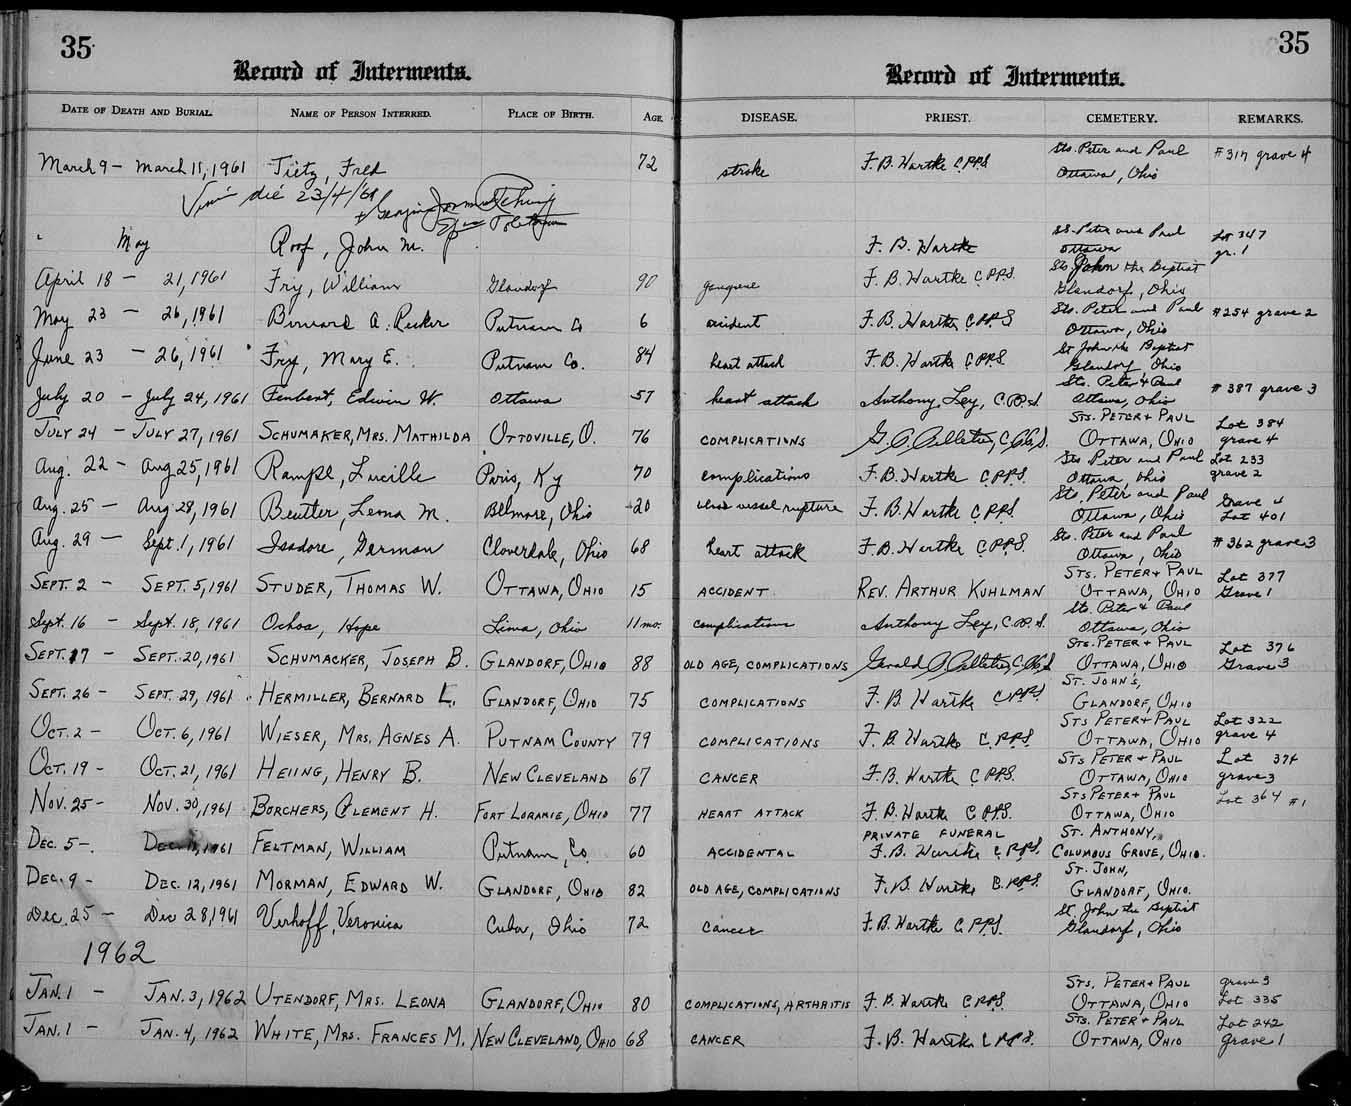 35
Record of Interments.
35
Record of Interments.
DATE OF DEATH AND BURIAL. NAME OF PERSON INTERRED. PLACE OF BIRTH. AGE. DISEASE. PRIEST. CEMETERY. REMARKS.
March 9 - March 11, 1961 Tietz, Fred 72 stroke F. B. Hartke C.PP.S. Sts. Peter and Paul Ottawa, Ohio #317 grave 4
die 23/4/61
May Roof, John M. F. B. Hartke SS. Peter and Paul Ottawa Lot 347 gr. 1
April 18 - 21, 1961 Fry, William Glandorf 90 F. B. Hartke C.PP.S. St. John the Baptist Glandorf, Ohio
May 23 - 26, 1961 Bernard A. Recker Putnam Co 6 accident F. B. Hartke C.PP.S Sts. Peter and Paul Ottawa, Ohio #254 grave 2
June 23 - 26, 1961 Fry, Mary E. Putnam Co. 84 heart attack F. B. Hartke C.PP.S. St John the Baptist Glandorf, Ohio
July 20 - July 24, 1961 Edwin W. Ottawa 57 heart attack Anthony Ley, C.PP.S. Sts. Peter & Paul Ottawa, Ohio #387 grave 3
JULY 24 - JULY 27, 1961 SCHUMAKER, MRS. MATHILDA OTTOVILLE, O. 76 COMPLICATIONS G. Pelletier, C.PP.S. STS. PETER & PAUL OTTAWA, OHIO Lot 384 grave 4
Aug. 22 - Aug 25, 1961 Rampe, Lucille Paris, Ky 70 complications F. B. Hartke C.PP.S. Sts Peter and Paul Ottawa, Ohio Lot 233 grave 2
Aug. 25 - Aug 28, 1961 Beutler, Leona M. Belmore, Ohio 20 blood vessel rupture F. B. Hartke C.PP.S. Sts. Peter and Paul Ottawa, Ohio Grave 4 Lot 401
Aug. 29 - Sept. 1, 1961 Isadore, German Cloverdale, Ohio 68 heart attack F. B. Hartke C.PP.S. Sts. Peter and Paul Ottawa, Ohio #362 grave 3
SEPT. 2 - SEPT. 5, 1961 STUDER, THOMAS W. OTTAWA, OHIO 15 ACCIDENT REV. ARTHUR KUHLMAN STS. PETER & PAUL OTTAWA, OHIO Lot 377 Grave 1
Sept. 16 - Sept. 18, 1961 Ochoa, Hope Lima, Ohio 11 mo. complications Anthony Ley, C.PP.S. Sts. Peter & Paul Ottawa, Ohio
SEPT. 17 - SEPT. 20, 1961 SCHUMACKER, JOSEPH B. GLANDORF, OHIO 88 OLD AGE, COMPLICATIONS Gerald Pelletier, C.PP.S STS. PETER & PAUL OTTAWA, OHIO Lot 376 Grave 3
SEPT. 26 - SEPT. 29, 1961 HERMILLER, BERNARD L. GLANDORF, OHIO 75 COMPLICATIONS F. B Hartke C.PP.S. ST. JOHN'S, GLANDORF, OHIO
OCT. 2 - OCT. 6, 1961 WIESER, MRS. AGNES A. PUTNAM COUNTY 79 COMPLICATIONS F. B. Hartke C.PP.S. STS PETER & PAUL OTTAWA, OHIO Lot 322 grave 4
OCT. 19 - OCT. 21, 1961 HEIING, HENRY B. NEW CLEVELAND 67 CANCER F. B. Hartke C.PP.S. STS PETER & PAUL OTTAWA, OHIO Lot 374 grave 3
NOV. 25 - NOV. 30, 1961 BORCHERS, CLEMENT H. FORT LORAMIE, OHIO 77 HEART ATTACK F. B. Hartke C.PP.S. STS PETER & PAUL OTTAWA, OHIO Lot 364 #1
DEC. 5 -. DEC. 1961 FELTMAN, WILLIAM Putnam, Co 60 ACCIDENTAL PRIVATE FUNERAL F. B. Hartke C.PP.S. ST. ANTHONY, COLUMBUS GROVE, OHIO.
DEC. 9 - DEC. 12, 1961 MORMAN, EDWARD W. GLANDORF, OHIO 82 OLD AGE, COMPLICATIONS F. B. Hartke C.PP.S. ST. JOHN, GLANDORF, OHIO.
Dec. 25 - Dec 28, 1961 Verhoff, Veronica Cuba, Ohio 72 Cancer F. B. Hartke C.PP.S. St. John the Baptist Glandorf, Ohio
1962
JAN. 1 - JAN. 3, 1962 UTENDORF, MRS. LEONA GLANDORF, OHIO 80 COMPLICATIONS, ARTHRITIS F. B. Hartke C.PP.S. STS. PETER & PAUL OTTAWA, OHIO grave 3 Lot 335
JAN. 1 - JAN. 4, 1962 WHITE, MRS. FRANCES M. NEW CLEVELAND, OHIO 68 CANCER F. B. Hartke C.PP.S. STS. PETER & PAUL OTTAWA, OHIO Lot 242 grave 1